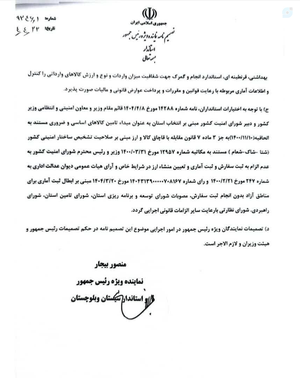 جمهوری اسلامی ایران
تصمیم نامه نماینده ویژه رئیس جمهور
استاندار
بسمه تعالی
شماره
تاریخ
بهداشتی، قرنطینه ای، استاندارد انجام و گمرک جهت شفافیت میزان واردات و نوع و ارزش کالاهای وارداتی را کنترل
و اطلاعات آماری مربوطه با رعایت قوانین و مقررات و پرداخت عوارض قانونی و مالیات صورت پذیرد.
ج) با توجه به اختیارات استانداران، نامه شماره ۶۲۳۸۸ مورخ ۱۴۰۴/۴/۱۸ قائم مقام وزیر و معاون امنیتی و انتظامی وزیر
کشور و دبیر شورای امنیت کشور مبنی بر انتخاب استان به عنوان مبداء، تامین کالاهای اساسی و ضروری مستند به
جزء ۳ ماده ۷ قانون مقابله با قاچاق کالا و ارز مبنی بر صلاحیت تشخیص ساختار امنیتی کشور
مستند به مکاتبه شماره ۱۲۹۵۷ مورخ ۱۴۰۰/۰۳/۳۱ وزیر محترم کشور شورای امنیت کشور به
عدم الزام به ثبت سفارش و ثبت آماری و تعیین منشاء ارز در شرایط خاص و آرای هیات عمومی دیوان عدالت اداری به
شماره ۲۴۷ مورخ ۱۴۰۰/۲/۲۱ و رای شماره مورخ مبنی بر ابطال ثبت آماری برای
مناطق آزاد بدون انجام ثبت سفارش، مصوبات شورای توسعه و برنامه ریزی استان، شورای تامین استان، شورای
راهبردی، شورای نظارتی با رعایت سایر الزامات قانونی اجرایی گردد.
د) تصمیمات نمایندگان ویژه رئیس جمهور در امور اجرایی موضوع این تصمیم نامه در حکم تصمیمات رئیس جمهور و
هیئت وزیران و لازم الاجر است.
منصور بیجار
نماینده ویژه رئیس جمهور
و استاندار سیستان وبلوچستان